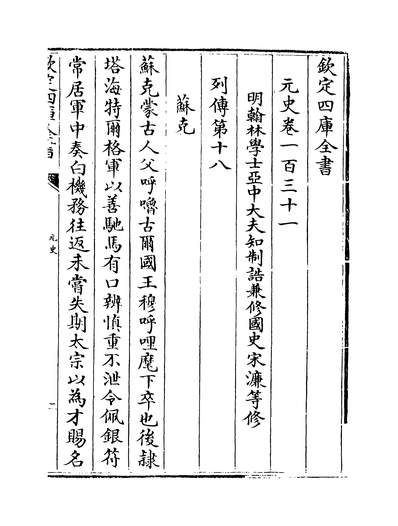 欽定四庫全書
元史卷一百三十一
明翰林學士亞中大夫知制誥兼修國史宋濂等修
列傳第十八
蘇克
蘇克蒙古人父呼嚕古爾國王穆呼哩麾下卒也後隸
塔海特爾格軍以善馳馬有口辨慎重不泄令佩銀符
常居軍中奏白機務往返未嘗失期太宗以為才賜名
元史
一